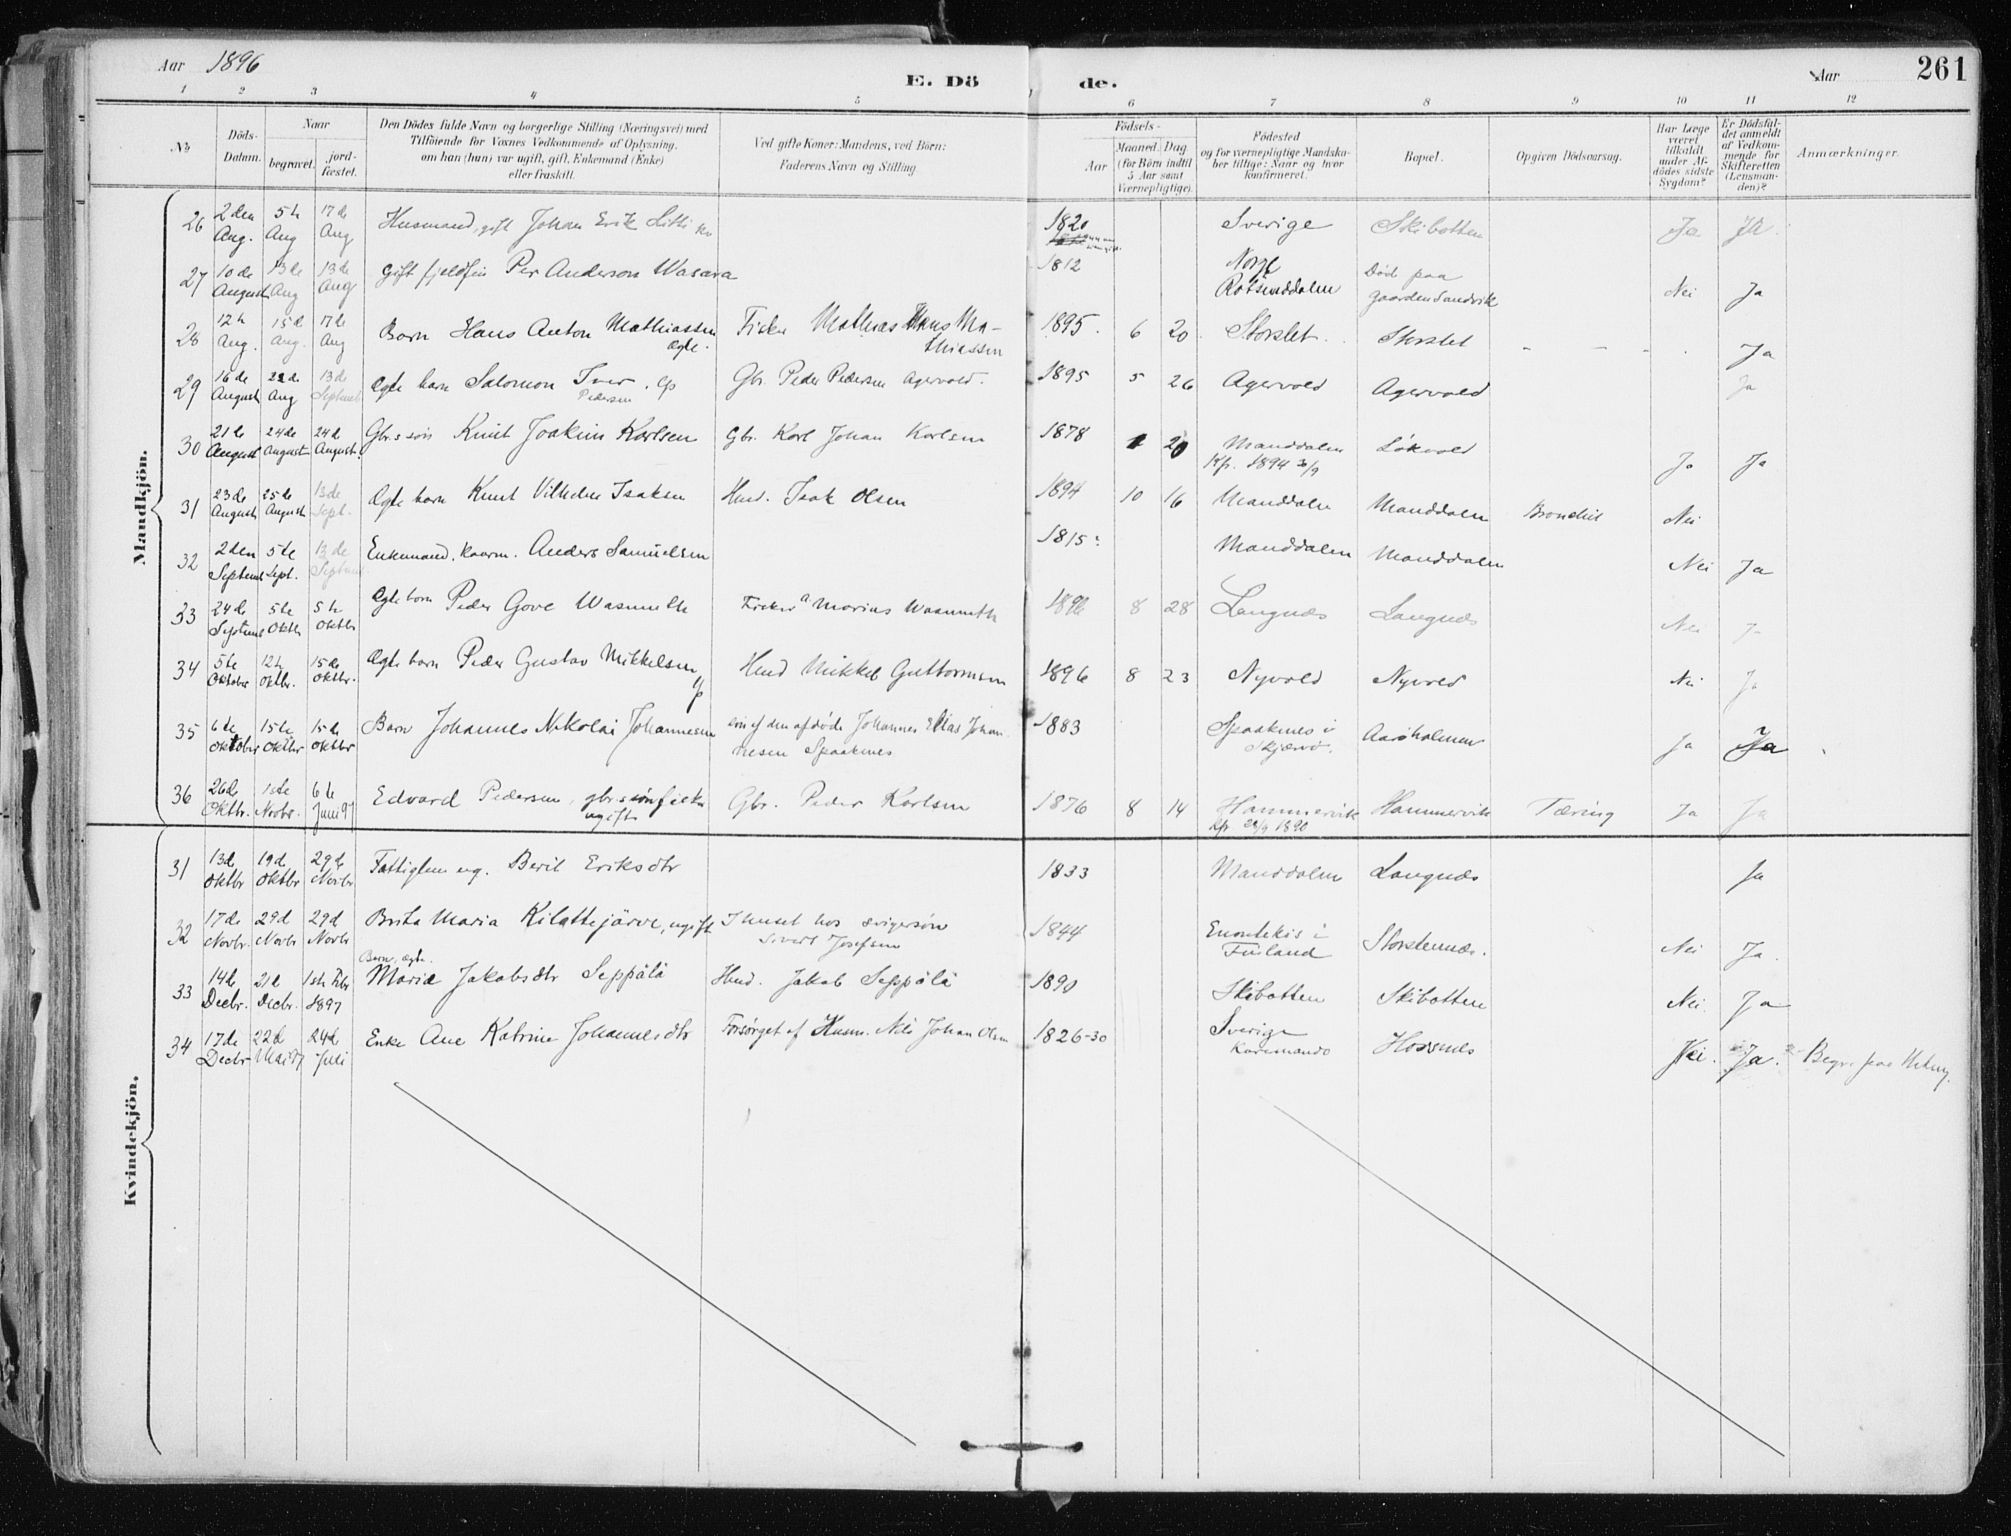 Aar 1896
E. Dö de.
Aar
261
1 2 3 4 5 6 7 8 9 10 11 12
No
Döds-Datum.
Naar
begravet.
jord-fæstet.
Den Dödes fulde Navn og borgerlige Stilling (Næringsvei) med
Tilföiende for Voxnes Vedkommende af Oplysning,
om han (hun) var ugift, gift, Enkemand (Enke)
eller fraskilt.
Ved gifte Koner: Mandens, ved Börn:
Faderens Navn og Stilling
Födsels-
Aar
Maaned. Dag
(for Börn indtil
5 Aar samt
Værnepligtige).
Födested
og for værnepligtige Mandska-
ber tillige: Naar og hvor
konfirmeret.
Bopæl.
Opgiven Dödsaarsag.
Har Læge
været
tilkaldt
under Af-
dödes sidste
Sygdom?
Er Dödsfal-
det anmeldt
af Vedkom-
mende for
Skifteretten
(Lensman-
den)?
Anmærkninger.
Mandkjön.
26 2den Aug. 5te Aug 17de Aug Husmand, gift Johan Erik 1820 Sverige Skibotten Ja Ja
27 10de August 13de Aug 13de Aug gift fjeldfin Per Anderson Wasara 1812 Norge Rotsunddalen Död paa gaarden Sandvik Nei Ja
28 12te Aug. 15de Aug. 17de Aug Barn Hans Anton Mathiassen ægte. Fisker Mathias Hans Mathiassen 1895. 6 20 Storslet Storslet Ja
29 16de August 22de Aug 13de Septemb Ægte barn Salomon Iver Pedersen Gbr. Peder Pedersen Agervold. 1895 5 26 Agervold Agervold Ja
30 21de August 24de August 24de August. Gbr.s sön Knut Joakim Karlsen Gbr. Karl Johan Karlsen 1878 1 20 Manddalen Kfr. 1894 30/9 Lökvold Ja Ja
31 23de August 25de August 13de Sept. Ægte barn Knut Vilhelm Isaksen Husd. Isak Olsen 1894 10 16 Manddalen Manddalen Bronchit Nei
32 2den Septemb 5te Sept. 13de Septemb Enkemand, kaarm. Anders Samuelsen 1815? Manddalen Manddalen Nei Ja
33 24de Septemb 5te Oktbr 5te Oktbr Ægte barn Peder Gove Wasmuth Fisker Marius Wasmuth 1896 8 28 Langnæs Langnæs Nei J
34 5te Oktober 12te Oktbr. 15de Oktbr. Ægte barn Peder Gustav Mikkelsen Husd Mikkel Guttormsen 1896 8 23 Nyvold Nyvold Nei Ja
35 6te Oktober 15te Oktbr 15de Oktbr Barn Johannes Nikolai Johannesen sön af den afdöde Johannes Elias Johannesen Spaaknes 1883 Spaaknes i Skjærvö. Aaröholmen Ja Ja
36 26de Oktbr. 1ste Novbr. 6te Juni 97 Edvard Pedersen, gbr.sön fisker ugift Gbr. Peder Karlsen 1876 8 14 Hammervik Kfr. 28/9 1890 Hammervik Tæring Ja Ja
Kvindekjön.
31 13de Oktbr 19de Oktbr 29de Novbr Fattiglem ug. Berit Eriksdtr 1833 Manddalen Langnæs Ja
32 17de Novbr. 29d Novbr 29d Novbr Brita Maria Kilattejärve, ugift I huset hos svigersön Sivert Josefsen 1844 Enontekis i Finland Storstennæs. Nei Ja.
33 14de Decbr. 21de Decbr. 1ste Febr 1897 Barn, ægte. Maria Jakobsdtr Seppälä Husd. Jakob Seppälä 1890 Skibotten Skibotten Nei. Ja
34 17de Decbr 22d Mai 97 24de Juli Enke Ane Katrine Johannesdtr Forsörget af Husm. Nils Johan Olsen 1826-30 Sverige Karesuando Horsnes Nei. Ja. Begr. paa